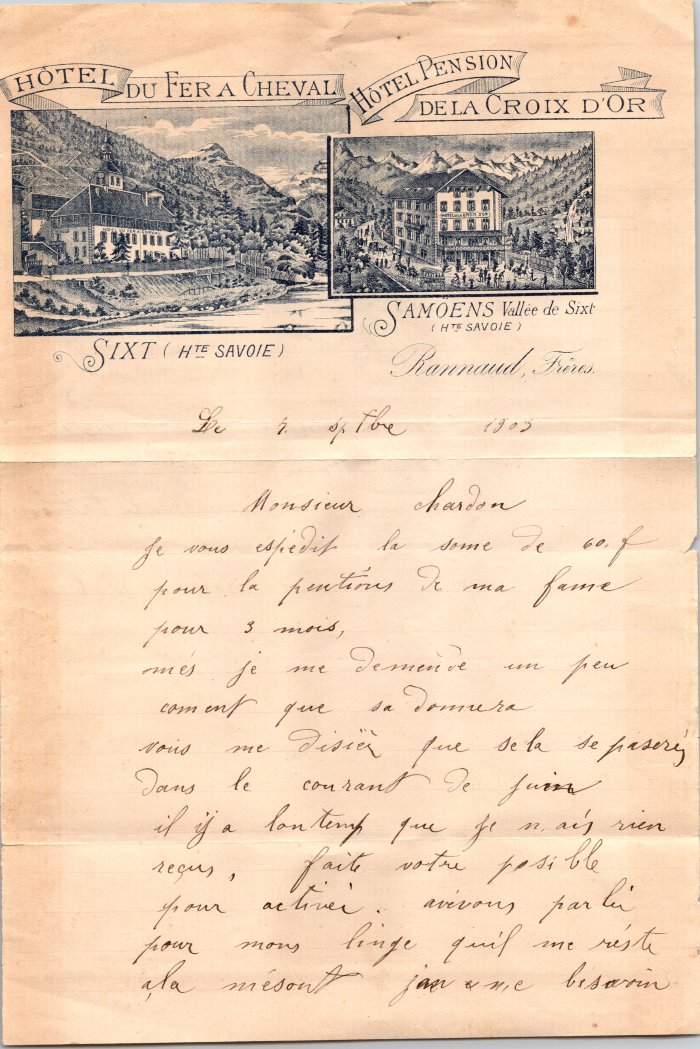 HÔTEL DU FER A CHEVAL
HÔTEL PENSION
DE LA CROIX D'OR
SAMOËNS Vallée de Sixt
(HTE SAVOIE)
SIXT (HTE SAVOIE)
Rannaud, Frères.
Le 7 sptbre 1905
Monsieur chardon
Je vous espédit la some de 60. f
pour la pentions de ma fame
pour 3 mois,
més je me demende un peu
coment que sa donnera
vous me disiéz que sela se paserés
dans le courant de juin
il y a lontemp que je n,ais rien
reçus, faite votre posible
pour activér. avévous parlér
pour mons linge quil me réste
a,la mésont besoin